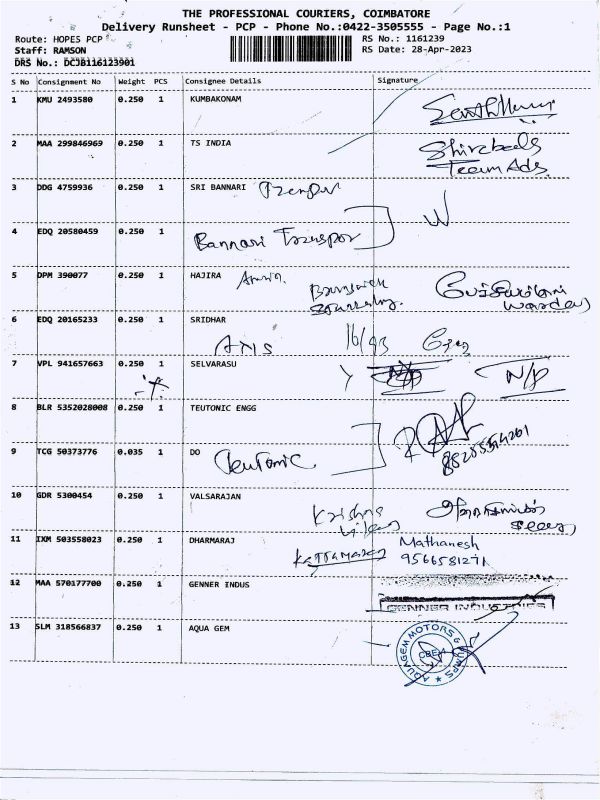 THE PROFESSIONAL COURIERS, COIMBATORE
Delivery Runsheet - PCP - Phone No.:0422-3505555 - Page No.:1
Route: HOPES PCP
RS No.: 1161239
Staff: RAMSON
RS Date: 28-Apr-2023
DRS No.: DCJB116123901
S No Consignment No Weight PCS Consignee Details Signature
1 KMU 2493580 0.250 1 KUMBAKONAM
2 MAA 299846969 0.250 1 TS INDIA
Team Ads.
3 DDG 4759936 0.250 1 SRI BANNARI
4 EDQ 20580459 0.250 1
Bannari Transpor
5 DPM 390077 0.250 1 HAJIRA
warden
6 EDQ 20165233 0.250 1 SRIDHAR
16/93
7 VPL 941657663 0.250 1 SELVARASU N/A
8 BLR 5352028008 0.250 1 TEUTONIC ENGG
9 TCG 50373776 0.035 1 DO Teutonic
10 GDR 5300454 0.250 1 VALSARAJAN
Krishna
11 IXM 503558023 0.250 1 DHARMARAJ Mathanesh
9566581271
12 MAA 570177700 0.250 1 GENNER INDUS
GENNER INDUSTRIES
13 SLM 318566837 0.250 1 AQUA GEM
AQUAGEM MOTORS & PUMPS
CBE-4